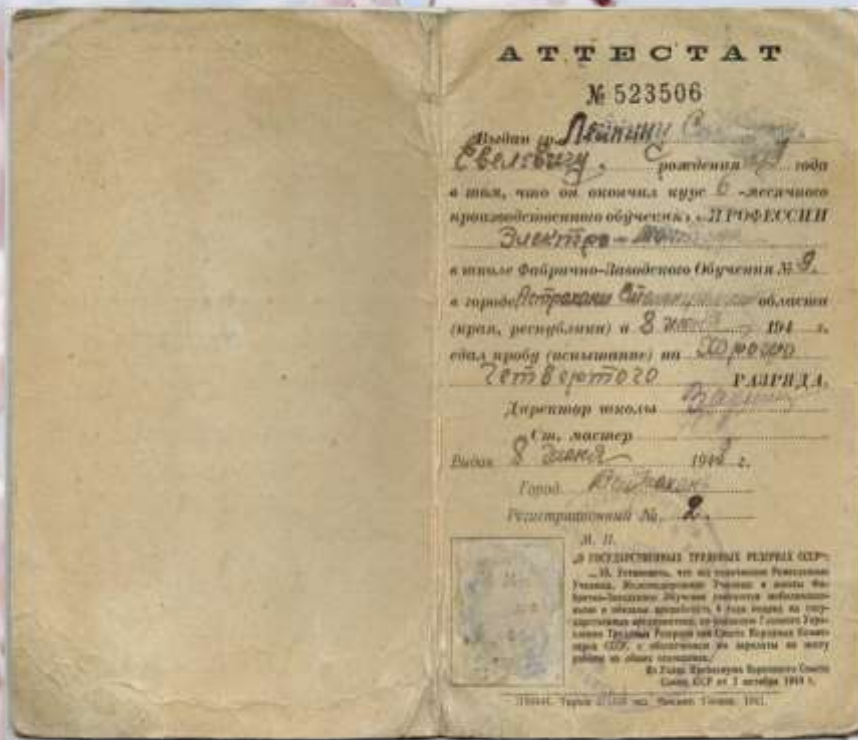 АТТЕСТАТ
№ 523506
Выдан гр. Лейкину
Евелевичу, рождения года
в том, что он окончил курс 6-месячного
производственного обучения ПРОФЕССИИ
Электро-
в школе Фабрично-Заводского Обучения № 9.
в городе Астрахани области
(края, республики) и 8 194 г.
сдал пробу (испытание) на Хорошо
Четвертого РАЗРЯДА.
Директор школы
Ст. мастер
Выдан 8 Июня 194 г.
Город Астрахань
Регистрационный № 2.
М. П.
„О ГОСУДАРСТВЕННЫХ ТРУДОВЫХ РЕЗЕРВАХ СССР“:
... 10. Установить, что все окончившие Ремесленные
Училища, Железнодорожные Училища и школы Фа-
брично-Заводского Обучения считаются мобилизован-
ными и обязаны проработать 4 года подряд на госу-
дарственных предприятиях, по указанию Главного Упра-
вления Трудовых Резервов при Совете Народных Комис-
саров СССР, с обеспечением им зарплаты по месту
работы на общих основаниях.
Из Указа Президиума Верховного Совета
Союза ССР от 2 октября 1940 г.